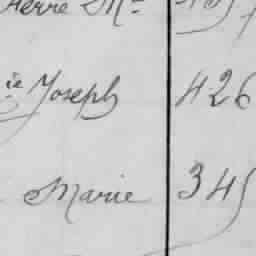 Pierre Mie
ie Joseph 426
Marie 345